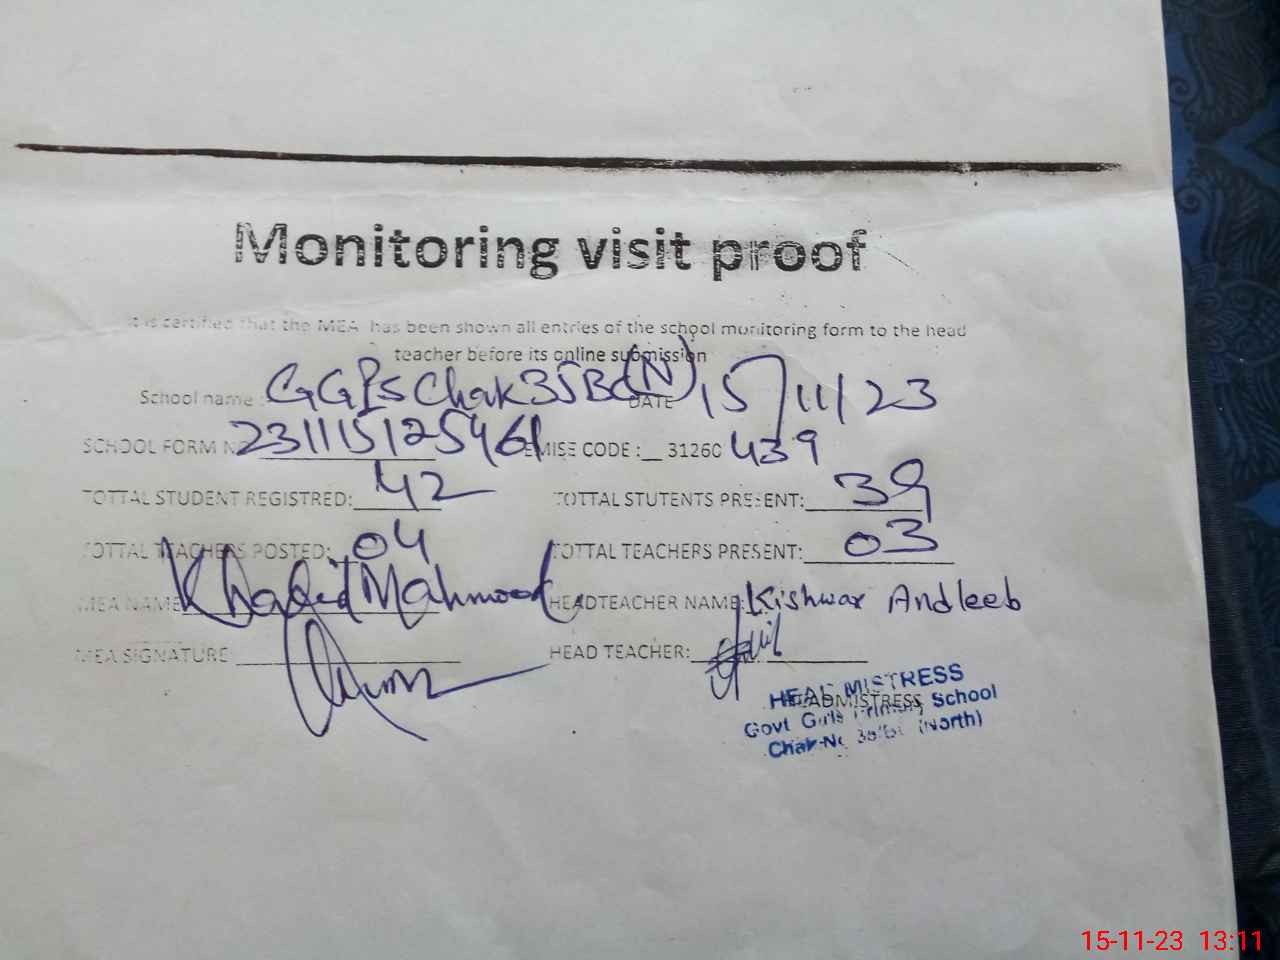 Monitoring visit proof
It is certified that the MEA has been shown all entries of the school monitoring form to the head
teacher before its online submission
School name: GGPS Chak 35BC(N) DATE 15/11/23
SCHOOL FORM N 231115125461 EMISE CODE :__ 31260 439
TOTTAL STUDENT REGISTRED: 42 TOTTAL STUTENTS PRESENT: 39
TOTTAL TEACHERS POSTED: 04 TOTTAL TEACHERS PRESENT: 03
MEA NAME Khalid Mahmood HEADTEACHER NAME: Kishwar Andleeb
MEA SIGNATURE HEAD TEACHER:
HEADMISTRESS
HEAD MISTRESS
Govt Girls Primary School
Chak No (North)
15-11-23 13:11